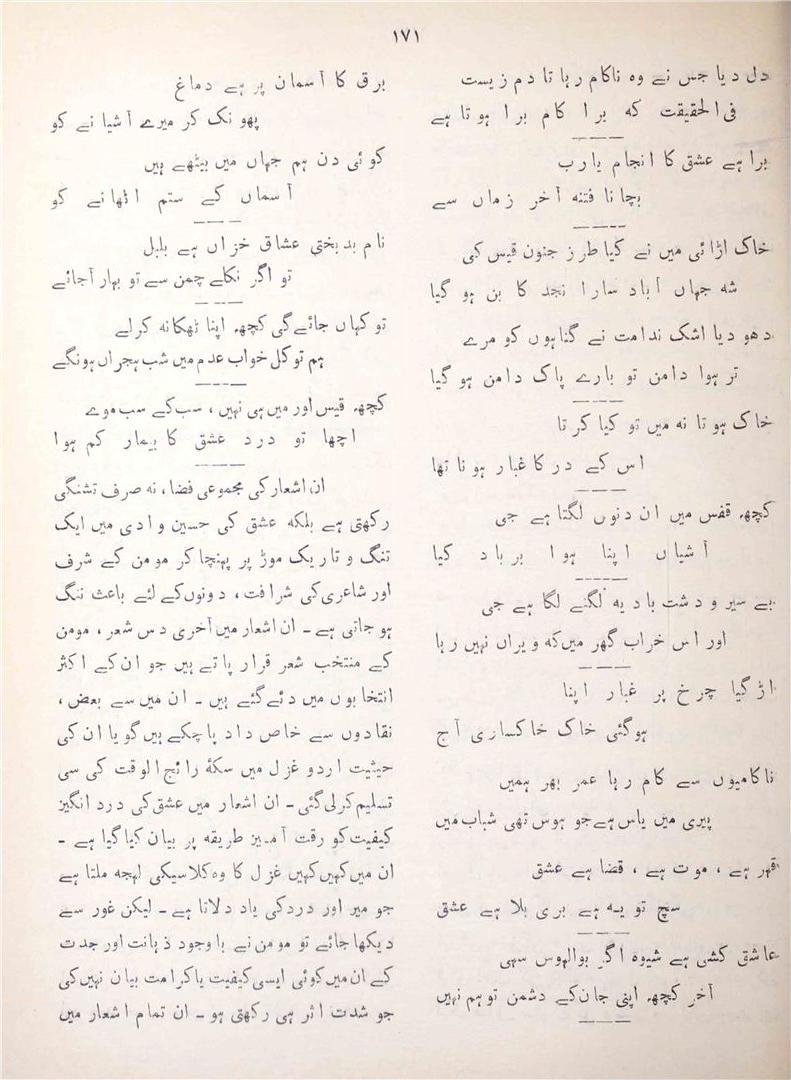 ۱۷۱
دل دیا جس نے وہ ناکام رہا تا دم زیست
فی الحقیقت کہ برا کام برا ہوتا ہے
برا ہے عشق کا انجام یارب
بچانا فتنہ آخر زماں سے
خاک اڑائی میں نے کیا طرز جنون قیس کی
شہ جہاں آباد سارا نجد کا بن ہو گیا
دھو دیا اشک ندامت نے گناہوں کو مرے
تر ہوا دامن تو بارے پاک دامن ہو گیا
خاک ہوتا نہ میں تو کیا کرتا
اس کے در کا غبار ہونا تھا
کچھ قفس میں ان دنوں لگتا ہے جی
آشیاں اپنا ہوا برباد کیا
بے سیر و دشت بادیہ لگنے لگا ہے جی
اور اس خراب گھر میں کہ ویراں نہیں رہا
اڑ گیا چرخ پر غبار اپنا
ہوگئی خاک خاکساری آج
ناکامیوں سے کام رہا عمر بھر ہمیں
پیری میں یاس ہے جو ہوس تھی شباب میں
قہر ہے ، موت ہے ، قضا ہے عشق
سچ تو یہ ہے بری بلا ہے عشق
عاشق کشی ہے شیوہ اگر بوالہوس سہی
آخر کچھ اپنی جان کے دشمن تو ہم نہیں
برق کا آسمان پر ہے دماغ
پھونک کر میرے آشیانے کو
کوئی دن ہم جہاں میں بیٹھے ہیں
آسماں کے ستم اٹھانے کو
نام بدبختی عشاق خزاں ہے بلبل
تو اگر نکلے چمن سے تو بہار آجائے
تو کہاں جائے گی کچھ اپنا ٹھکانہ کرلے
ہم تو کل خواب عدم میں شب ہجراں ہونگے
کچھ قیس اور میں ہی نہیں ، سب کے سب موے
اچھا تو درد عشق کا بیمار کم ہوا
ان اشعار کی مجموعی فضا ، نہ صرف تشنگی
رکھتی ہے بلکہ عشق کی حسین وادی میں ایک
تنگ و تاریک موڑ پر پہنچا کر مومن کے شرف
اور شاعری کی شرافت ، دونوں کے لئے باعث ننگ
ہو جاتی ہے ۔ ان اشعار میں آخری دس شعر ، مومن
کے منتخب شعر قرار پاتے ہیں جو ان کے اکثر
انتخابوں میں دئے گئے ہیں ۔ ان میں سے بعض ،
نقادوں سے خاص داد پا چکے ہیں گویا ان کی
حیثیت اردو غزل میں سکۂ رائج الوقت کی سی
تسلیم کرلی گئی ۔ ان اشعار میں عشق کی درد انگیز
کیفیت کو رقت آمیز طریقہ پر بیان کیا گیا ہے ۔
ان میں کہیں کہیں غزل کا وہ کلاسیکی لہجہ ملتا ہے
جو میر اور درد کی یاد دلاتا ہے ۔ لیکن غور سے
دیکھا جائے تو مومن نے باوجود ذہانت اور جدت
کے ان میں کوئی ایسی کیفیت یا کرامت بیان نہیں کی
جو شدت اثر ہی رکھتی ہو ۔ ان تمام اشعار میں